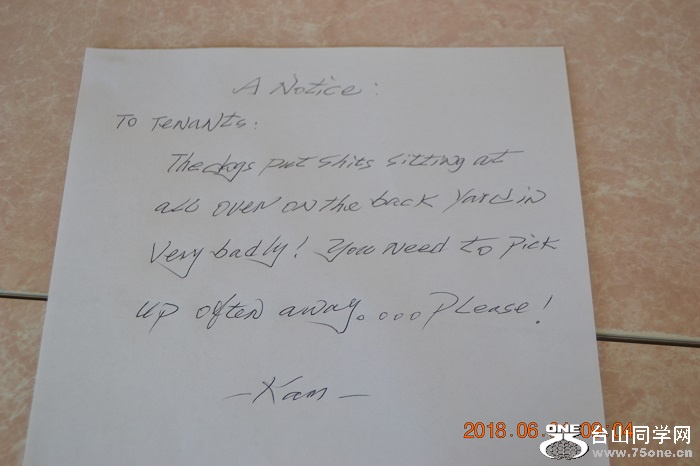 A Notice:
TO TENANTS:
The dogs put shits sitting at
all over on the back yard in
very badly! You need to pick
up often away....please!
- Kam -
2018.06. 02:04
ONE 台山同学网
www.75one.cn